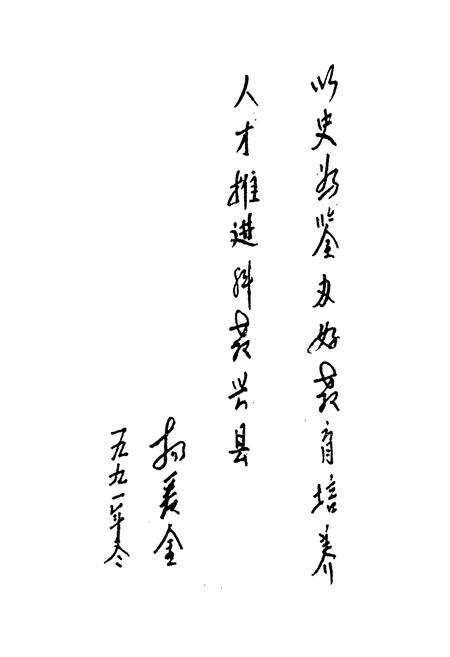 以史为鉴办好教育培养
人才推进科教兴县
金
一九九一年冬